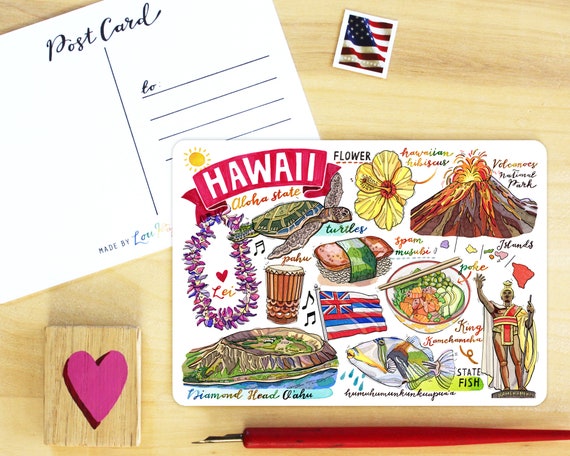 Post Card
to:
MADE BY
HAWAII
Aloha state
FLOWER
hawaiian
hibiscus
Volcanoes
National
Park
turtles
spam
musubi
Islands
Lei
pahu
poke
King
Kamehameha
STATE
FISH
Diamond Head O'ahu
humuhumunkunkuapua'a